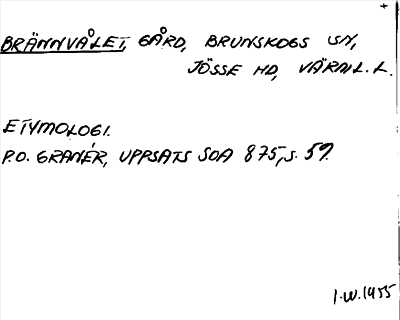 +
BRÄNNVÅLET, GÅRD, BRUNSKOGS SN,
JÖSSE HD, VÄRML. L.
ETYMOLOGI.
P.O. GRANÉR, UPPSATS SOA 875, S. 59.
I.W. 1955